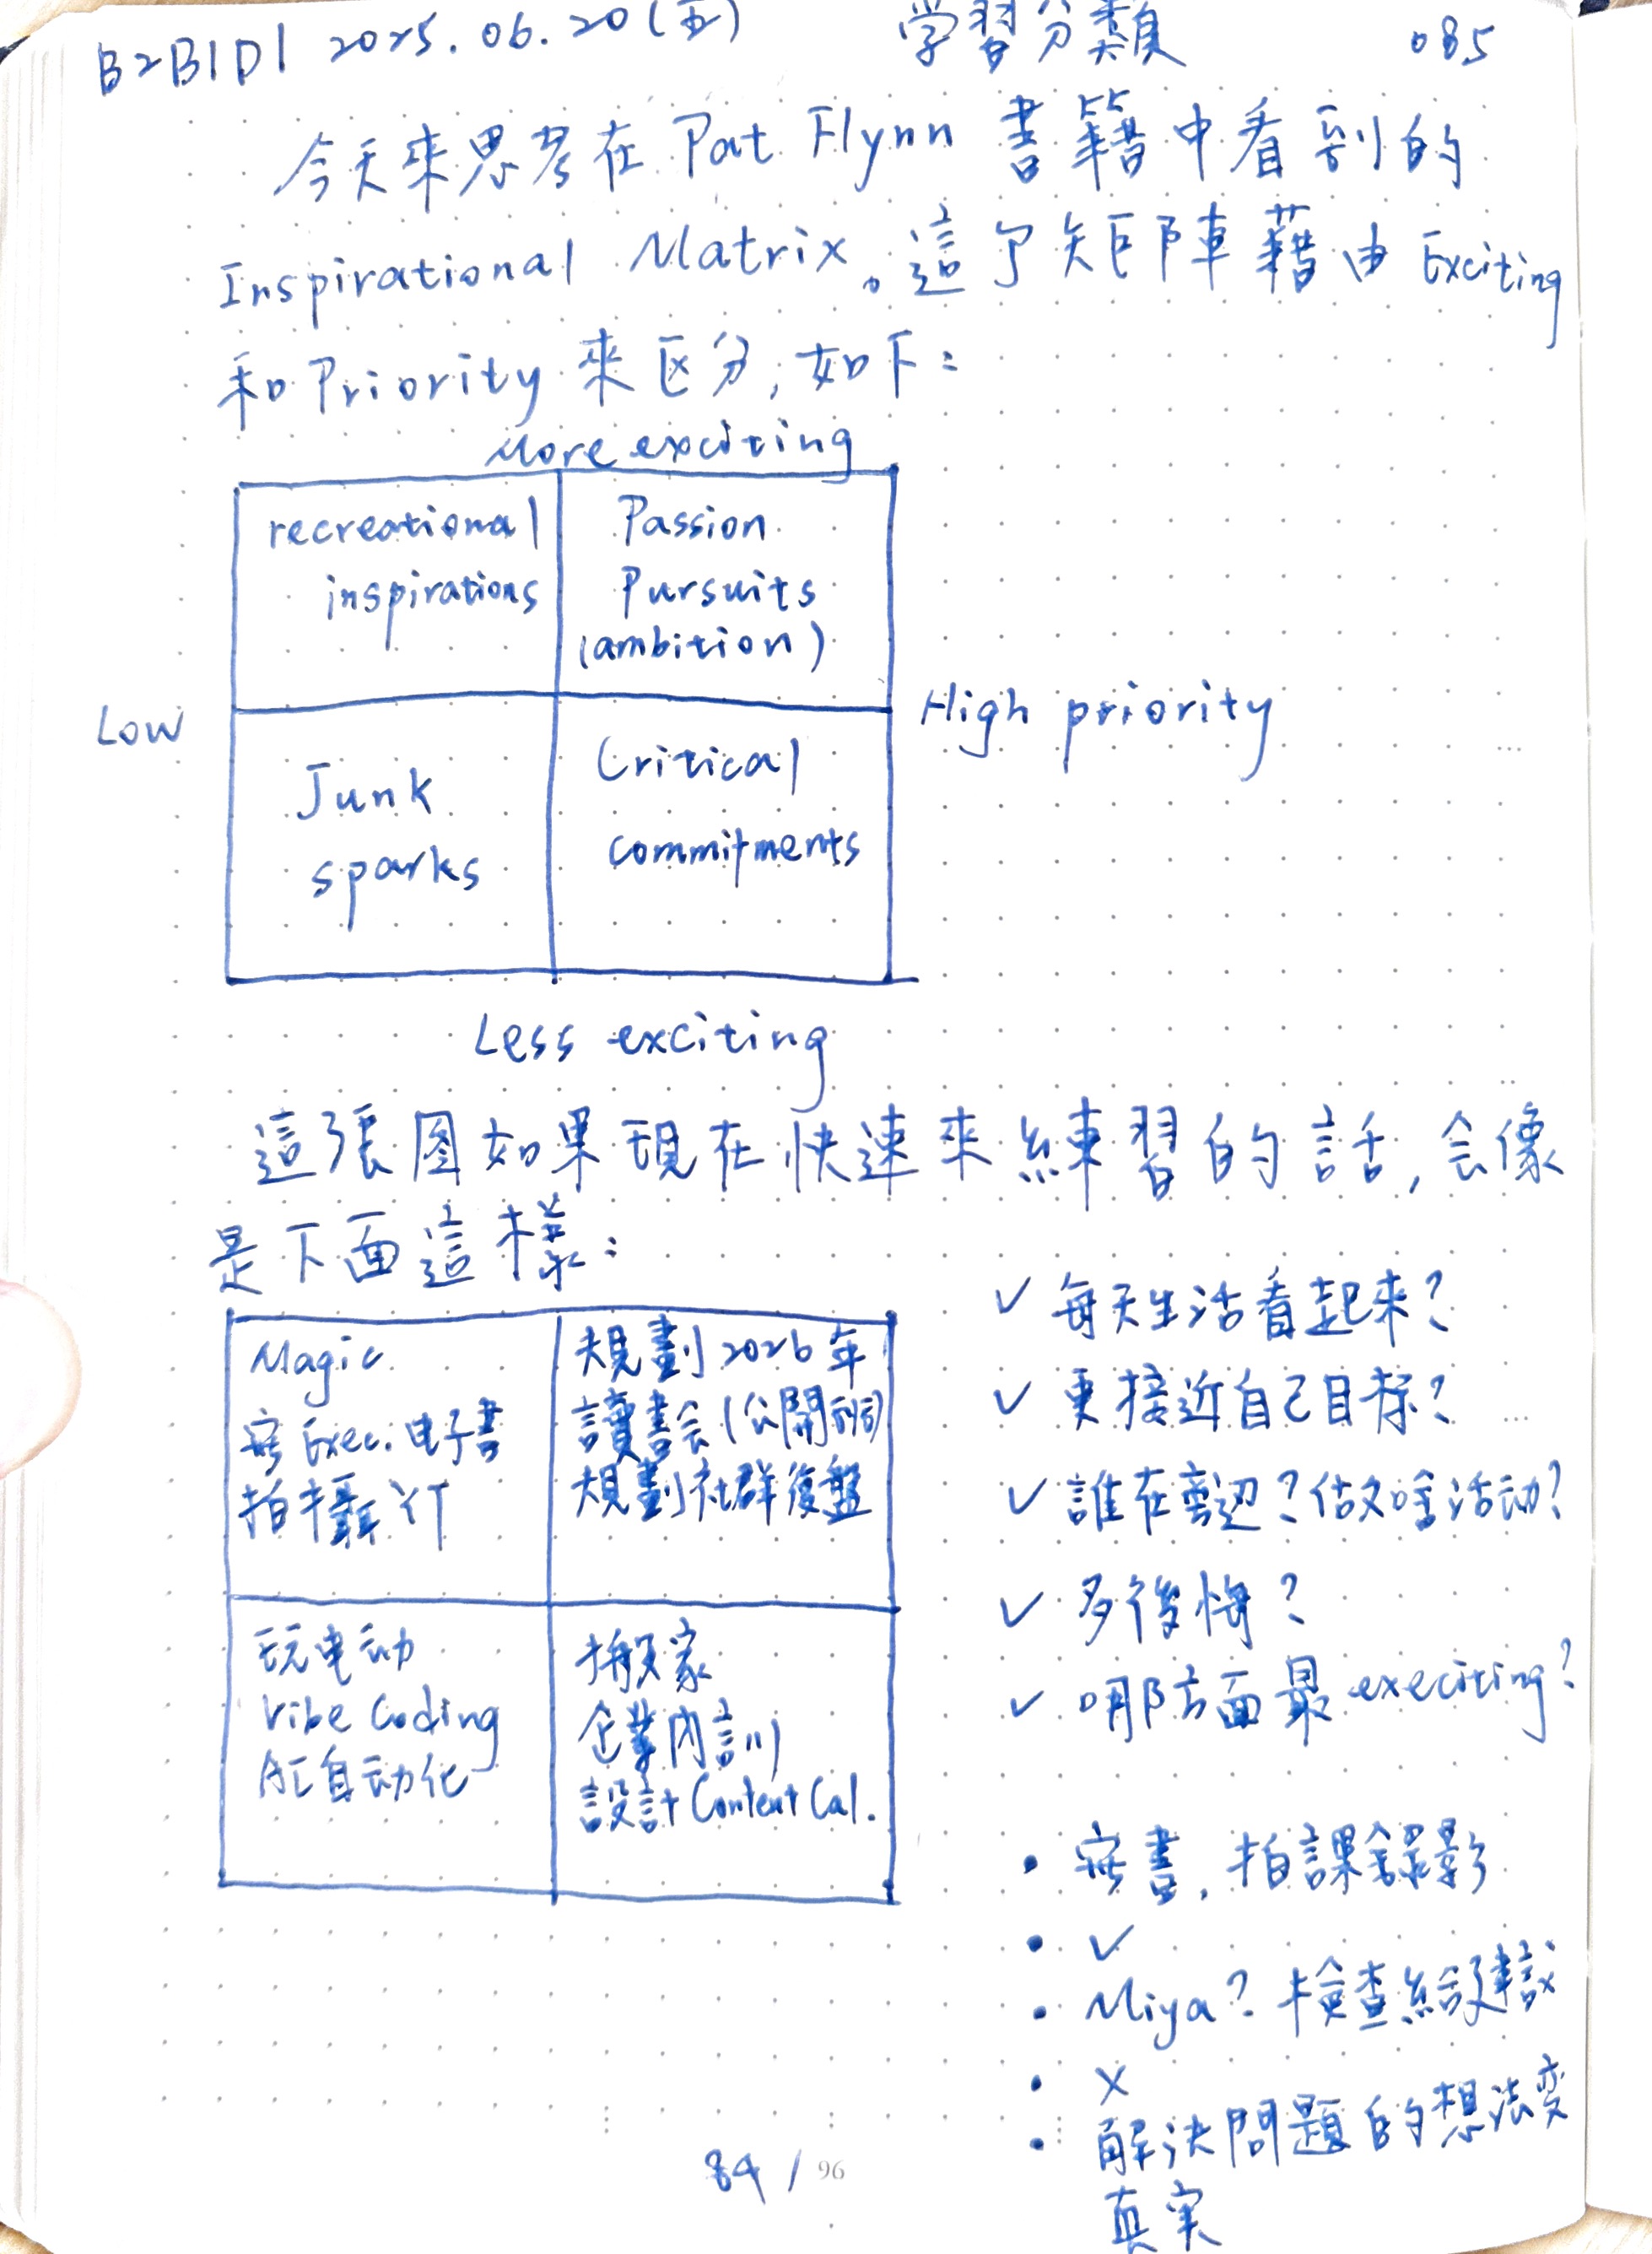 B2B1D1 2025.06.20(五) 学習分類 085
今天來思考在 Pat Flynn 書籍中看到的
Inspirational Matrix。這个矩陣藉由 Exciting
和 Priority 來区分, 如下:
More exciting
recreational inspirations
Passion Pursuits (ambition)
Low
High priority
Junk sparks
Critical commitments
Less exciting
這張图如果現在快速來練習的話, 会像
是下面這樣:
Magic
寫 Exec. 电子書
拍攝 YT
規劃 2026 年
讀書会 (公開
規劃社群復盤
玩电动
Vibe Coding
AI自动化
搬家
企業內訓
設計 Content Cal.
✓ 每天生活看起來?
✓ 更接近自己目标?
✓ 誰在旁边? 做啥活动?
✓ 多後悔?
✓ 哪方面最 execiting?
• 寫書, 拍課錄影
• ✓
• Miya? 檢查給建議
• ×
• 解決問題的想法变
真実
84 / 96